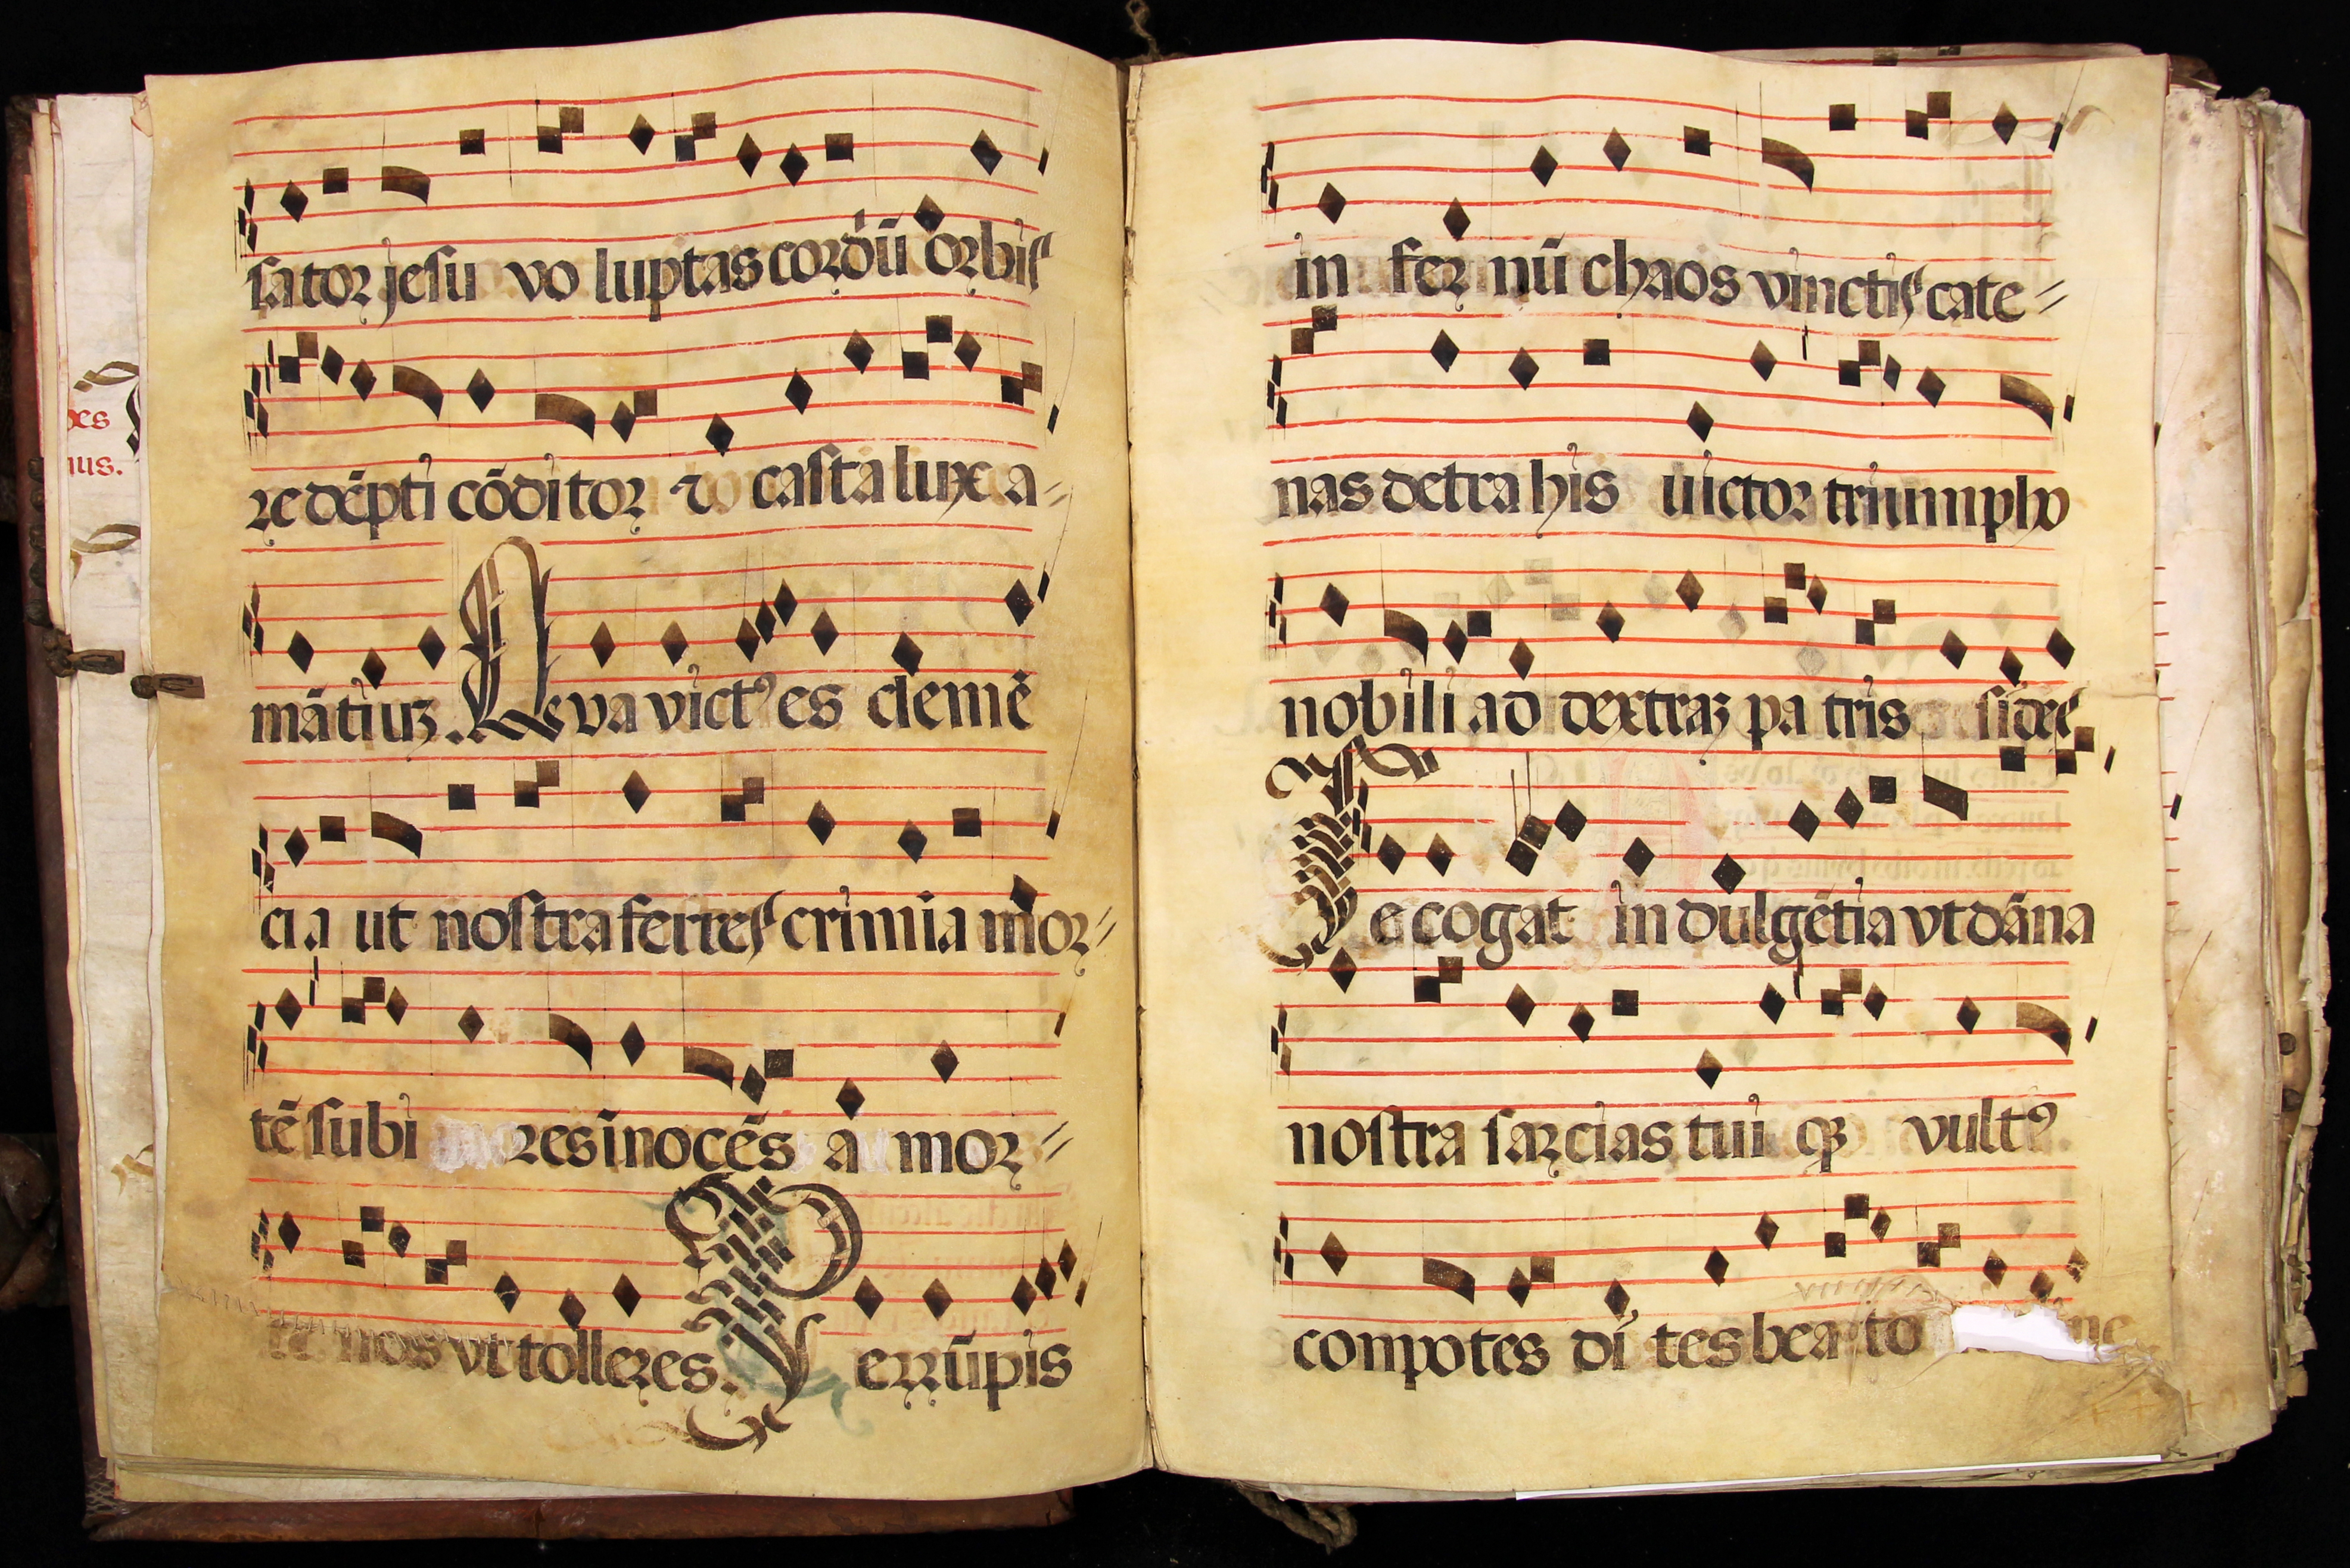 xes
nus.
sator jesu vo luptas cordū orbis
re dēpti cōditor ⁊ casta lux a-
mātiuꝫ. Qva victꝰ es clemē
cia ut nostra ferres crimia mor-
tē subi res inocēs a mor-
te nos vt tolleres. P errūpis
in fer nū chaos vinctis cate-
nas detra his uictor triumpho
nobili ad dextraꝫ pa tris sides
Te cogat in dulgētia vt dāna
nostra sarcias tui qꝫ vultꝰ
conpotes di tes bea to ne